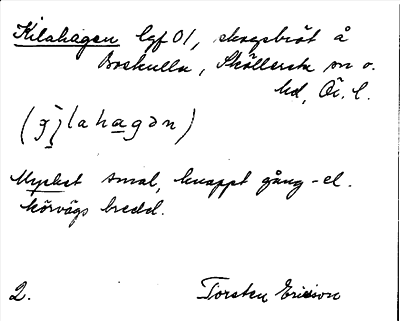 Kilahagen lgf 01, skogsbröt å
Boskulla, Sköllersta sn o.
hd, Ör. l.
(ji̱lahagən)
Mycket smal, knappt gång- el.
körvägs bredd.
2. Torsten Ericson